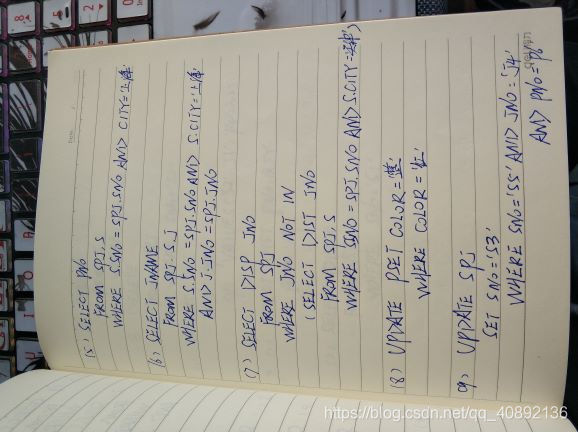 (5) SELECT PNO
FROM SPJ, S
WHERE S.SNO=SPJ.SNO AND CITY='上海'
(6) SELECT JNAME
FROM SPJ. S. J
WHERE S.SNO=SPJ.SNO AND S.CITY='上海'
AND J.JNO=SPJ.JNO
(7) SELECT DISP JNO
FROM SPJ
WHERE JNO NOT IN
(SELECT DIST JNO
FROM SPJ, S
WHERE S.SNO=SPJ.SNO AND S.CITY='天津')
(8) UPDATE P SET COLOR='蓝'
WHERE COLOR='红'
(9) UPDATE SPJ
SET SNO='S3'
WHERE SNO='S5' AND JNO='J4'
AND PNO='P6'
https://blog.csdn.net/qq_40892136